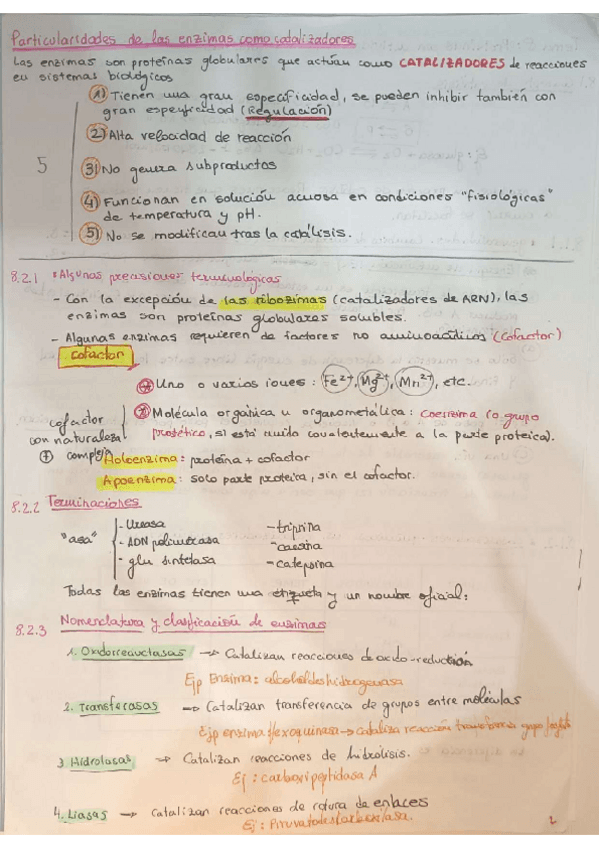 Particularidades de las enzimas como catalizadores
Las enzimas son proteínas globulares que actúan como CATALIZADORES de reacciones
en sistemas biológicos
1) Tienen una gran especificidad, se pueden inhibir también con
gran especificidad (Regulación)
2) Alta velocidad de reacción
5
3) No genera subproductos
4) Funcionan en solución acuosa en condiciones "fisiológicas"
de temperatura y pH.
5) No se modifican tras la catálisis.
8.2.1 Algunas precisiones terminológicas
- Con la excepción de las ribozimas (catalizadores de ARN), las
enzimas son proteínas globulares solubles.
- Algunas enzimas requieren de factores no aminoacídicos (Cofactor)
Cofactor
Uno o varios iones: Fe2+, Mg2+, Mn2+, etc.
Molécula orgánica u organometálica: coenzima (o grupo
prostético, si está unido covalentemente a la parte proteica).
cofactor
con naturaleza
compleja
Holoenzima: proteína + cofactor
Apoenzima: solo parte proteica, sin el cofactor.
8.2.2 Terminaciones
"asa"
- Ureasa
- ADN polimerasa
- glu sintetasa
- tripsina
- caseína
- catepsina
Todas las enzimas tienen una etiqueta y un nombre oficial:
8.2.3 Nomenclatura y clasificación de enzimas
1. Oxidorreductasas → Catalizan reacciones de oxido-reducción
Ejp Enzima: alcohol deshidrogenasa
2. Transferasas → Catalizan transferencia de grupos entre moléculas
Ejp enzima: Hexoquinasa → cataliza reacción transferir grupo
3. Hidrolasas → Catalizan reacciones de hidrólisis.
Ej: carboxipeptidasa A
4. Liasas → Catalizan reacciones de rotura de enlaces
Ej: Piruvato descarboxilasa.
2